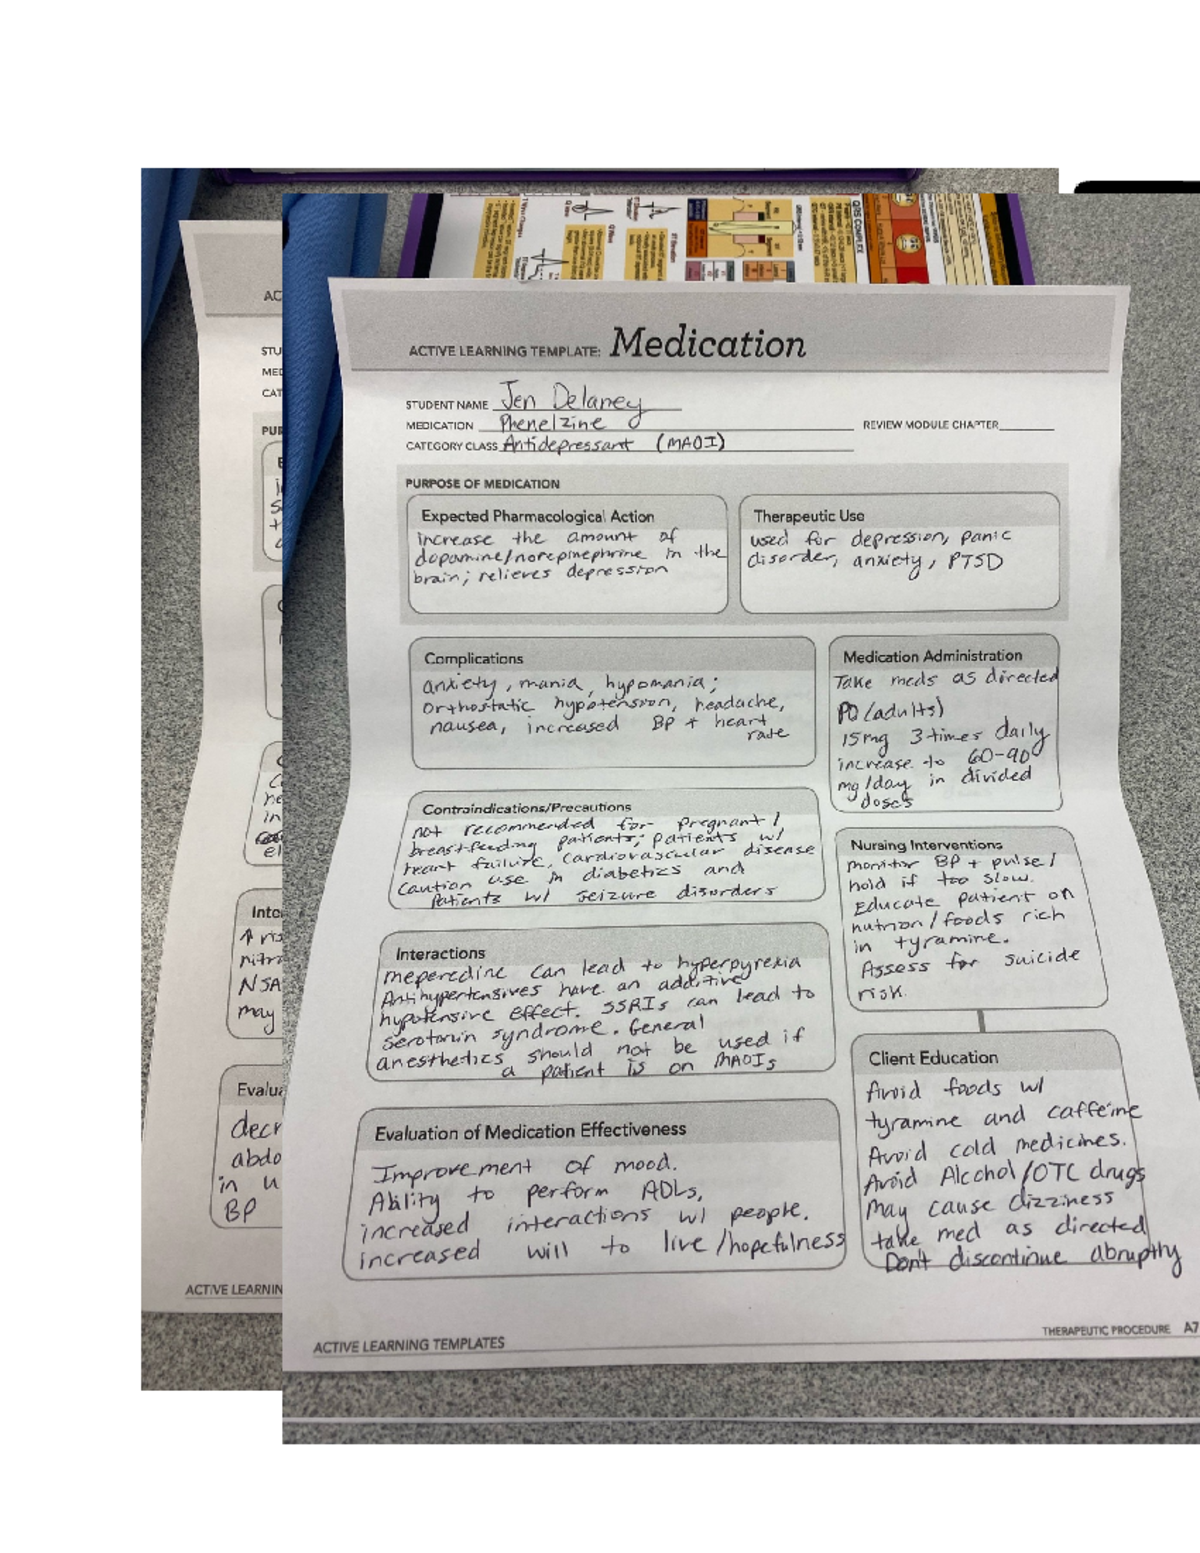 AC
STU
MED
CAT
PUR
Inte
↑ ris
nitr
NSA
may
Evalua
decr
abdo
in u
BP
ACTIVE LEARNIN
QRS COMPLEX
ACTIVE LEARNING TEMPLATE: Medication
STUDENT NAME Jen Delaney
MEDICATION Phenelzine
REVIEW MODULE CHAPTER
CATEGORY CLASS Antidepressant (MAOI)
PURPOSE OF MEDICATION
Expected Pharmacological Action
increase the amount of
dopamine/norepinephrine in the
brain; relieves depression
Therapeutic Use
used for depression, panic
disorder, anxiety, PTSD
Complications
anxiety, mania, hypomania;
orthostatic hypotension, headache,
nausea, increased BP + heart
rate
Medication Administration
Take meds as directed
PO (adults)
15mg 3 times daily
increase to 60-90
mg/day in divided
doses
Contraindications/Precautions
not recommended for pregnant/
breastfeeding patients; patients w/
heart failure, cardiovascular disease
caution use in diabetics and
patients w/ seizure disorders
Nursing Interventions
monitor BP + pulse/
hold if too slow.
Educate patient on
nutrion/foods rich
in tyramine.
Assess for suicide
risk.
Interactions
meperedine can lead to hyperpyrexia
Antihypertensives have an additive
hypotensive effect. SSRIs can lead to
serotonin syndrome. General
anesthetics should not be used if
a patient is on MAOIs
Client Education
Avoid foods w/
tyramine and caffeine
Avoid cold medicines.
Avoid Alcohol/OTC drugs
may cause dizziness
take med as directed
Don't discontinue abruptly
Evaluation of Medication Effectiveness
Improvement of mood.
Ability to perform ADLs,
increased interactions w/ people.
increased will to live/hopefulness
ACTIVE LEARNING TEMPLATES
THERAPEUTIC PROCEDURE A7